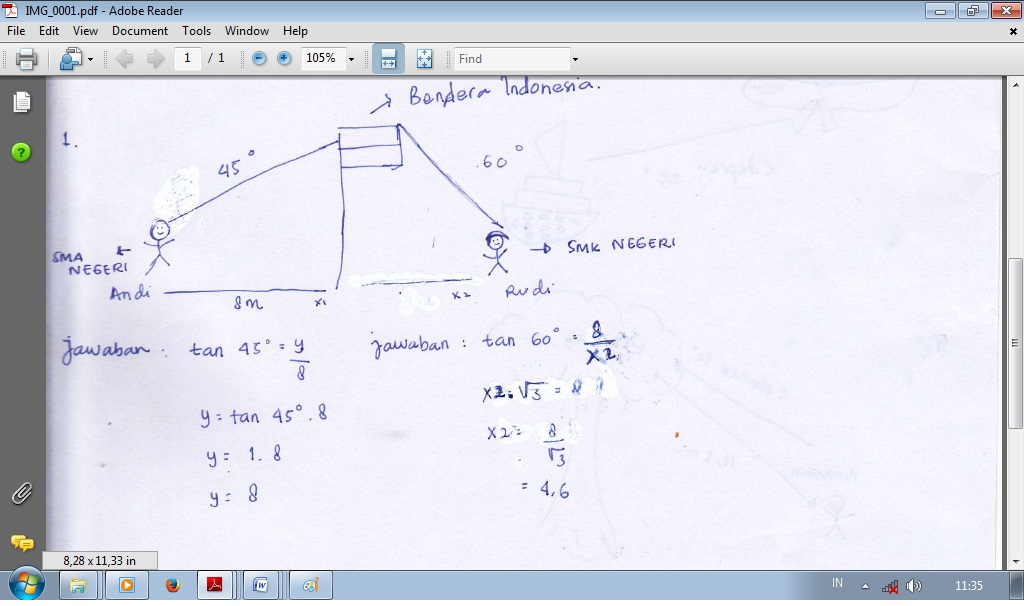 IMG_0001.pdf - Adobe Reader
File Edit View Document Tools Window Help
1 / 1 105% Find
Bendera Indonesia.
1.
45°
60°
SMA NEGERI
SMK NEGERI
Andi
8m
x1
x2
Rudi
jawaban : tan 45° = y/8
y = tan 45° . 8
y = 1. 8
y = 8
jawaban : tan 60° = 8/x2
x2 . √3 = 8
x2 = 8/√3
= 4,6
8,28 x 11,33 in
IN
11:35